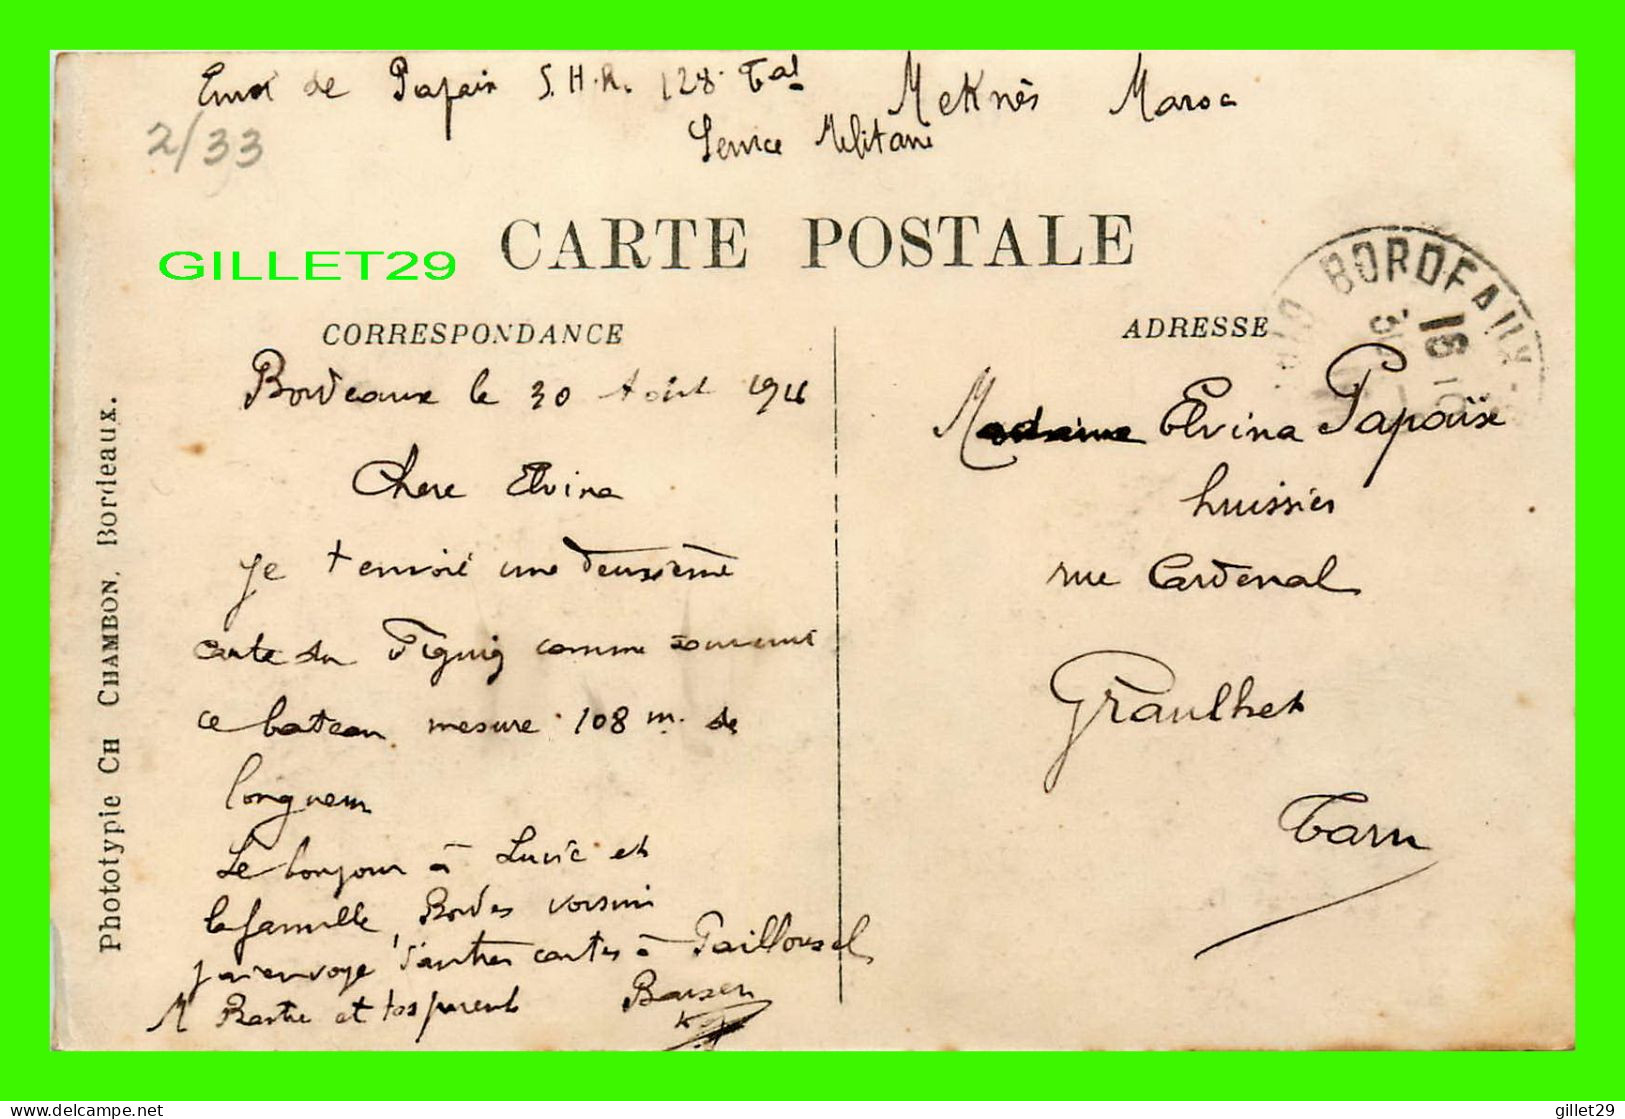 Envoi de Papaix S.H.R. 128. Tal Meknès Maroc
Service Militaire
2/33
CARTE POSTALE
GILLET29
BORDEAUX
16
CORRESPONDANCE
ADRESSE
Bordeaux le 30 Août
Chere Elvina
je t envoié une deuxième
carte du Figuig comme souvenir
ce bateau mesure 108 m. de
longueur
Le bonjour à Lucie et
la famille, Bordes voisin
j'ai envoyé d'autres cartes à
M et tes parent
Madame Elvina
huissier
rue Cardenal
Graulhet
Tarn
Phototypie CH CHAMBON, Bordeaux.
www.delcampe.net
gillet29